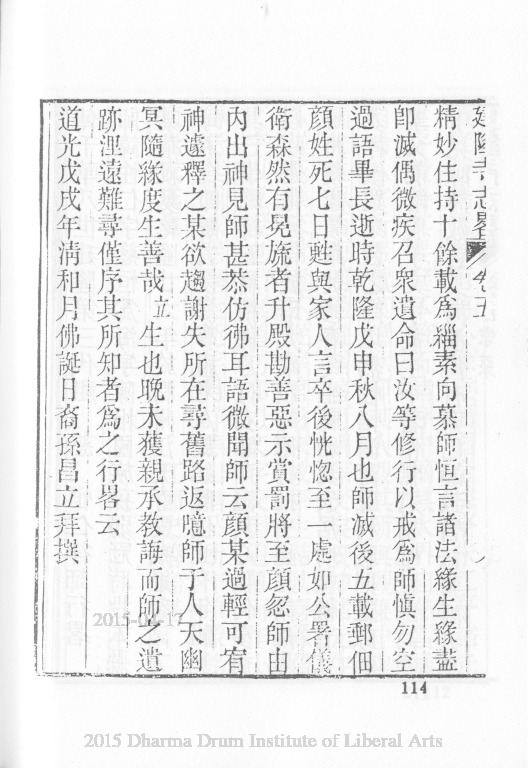 建隆寺志畧 卷五 八
精妙住持十餘載爲緇素向慕師恒言諸法緣生緣盡
卽滅偶微疾召衆遺命曰汝等修行以戒爲師愼勿空
過語畢長逝時乾隆戊申秋八月也師滅後五載郵佃
顔姓死七日甦與家人言卒後恍惚至一處如公署儀
衛森然有冕旒者升殿勘善惡示賞罰將至顔忽師由
內出神見師甚恭仿彿耳語微聞師云顔某過輕可宥
神遽釋之某欲趨謝失所在尋舊路返噫師于人天幽
冥隨緣度生善哉 立 生也晚未獲親承教誨而師之遺
跡湮遠難尋僅序其所知者爲之行畧云
道光戊戌年清和月佛誕日裔孫昌立拜撰
114
2015-04-17
2015 Dharma Drum Institute of Liberal Arts